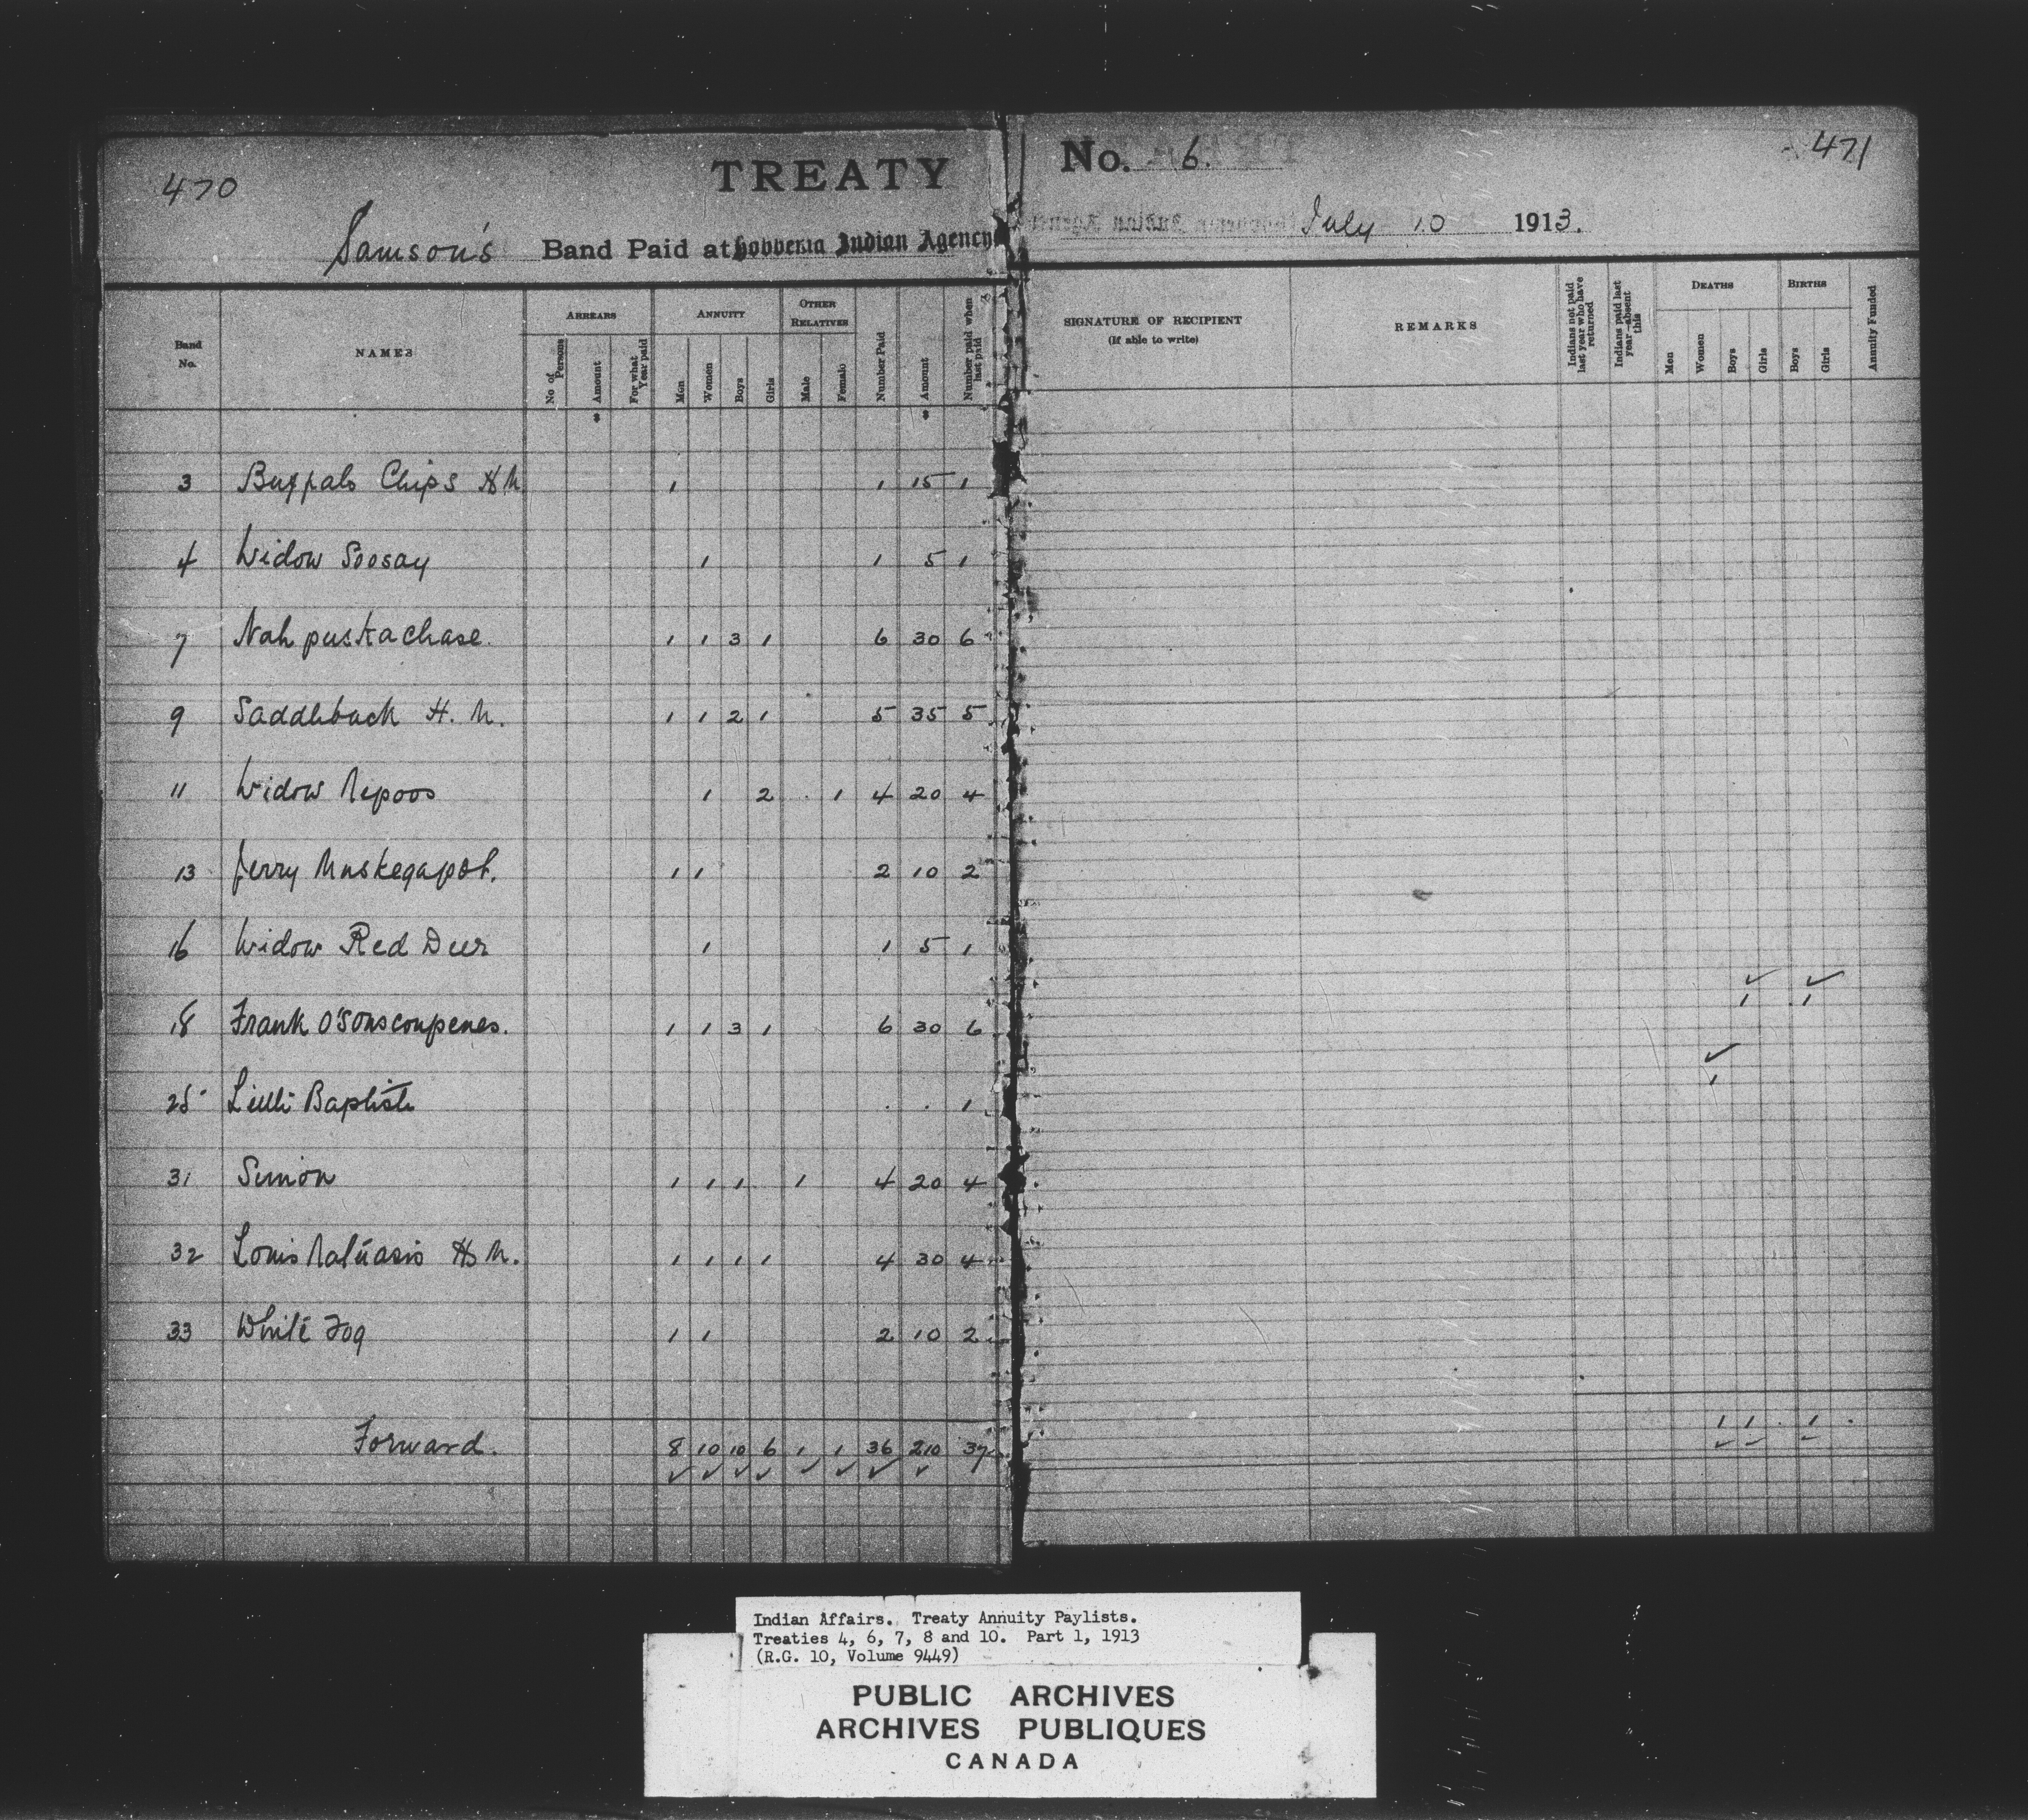 470
TREATY
No. 6.
471
Samson's Band Paid at Hobbema Indian Agency
July 10 1913.
Band No.
NAMES
ARREARS
ANNUITY
OTHER RELATIVES
No of Persons
Amount
For what Year paid
Men
Women
Boys
Girls
Male
Female
Number Paid
Amount
Number paid when last paid
SIGNATURE OF RECIPIENT
(If able to write)
REMARKS
Indians not paid last year who have returned
Indians paid last year—absent this
DEATHS
BIRTHS
Men
Women
Boys
Girls
Boys
Girls
Annuity Funded
$ $
3 Buffalo Chips H M 1 1 15 1
4 Widow Soosay 1 1 5 1
7 Nah puskachase. 1 1 3 1 6 30 6
9 Saddleback H. M. 1 1 2 1 5 35 5
11 Widow Nepoos 1 2 1 4 20 4
13 Jerry Muskegapot. 1 1 2 10 2
16 Widow Red Deer 1 1 5 1
18 Frank O'Sonscoupenes. 1 1 3 1 6 30 6 1 1
25 Little Baptiste 1 1
31 Simon 1 1 1 1 4 20 4
32 Louis Natuasis H M. 1 1 1 1 4 30 4
33 White Fog 1 1 2 10 2
Forward. 8 10 10 6 1 1 36 210 37 1 1 1
Indian Affairs. Treaty Annuity Paylists.
Treaties 4, 6, 7, 8 and 10. Part 1, 1913
(R.G. 10, Volume 9449)
PUBLIC ARCHIVES
ARCHIVES PUBLIQUES
CANADA